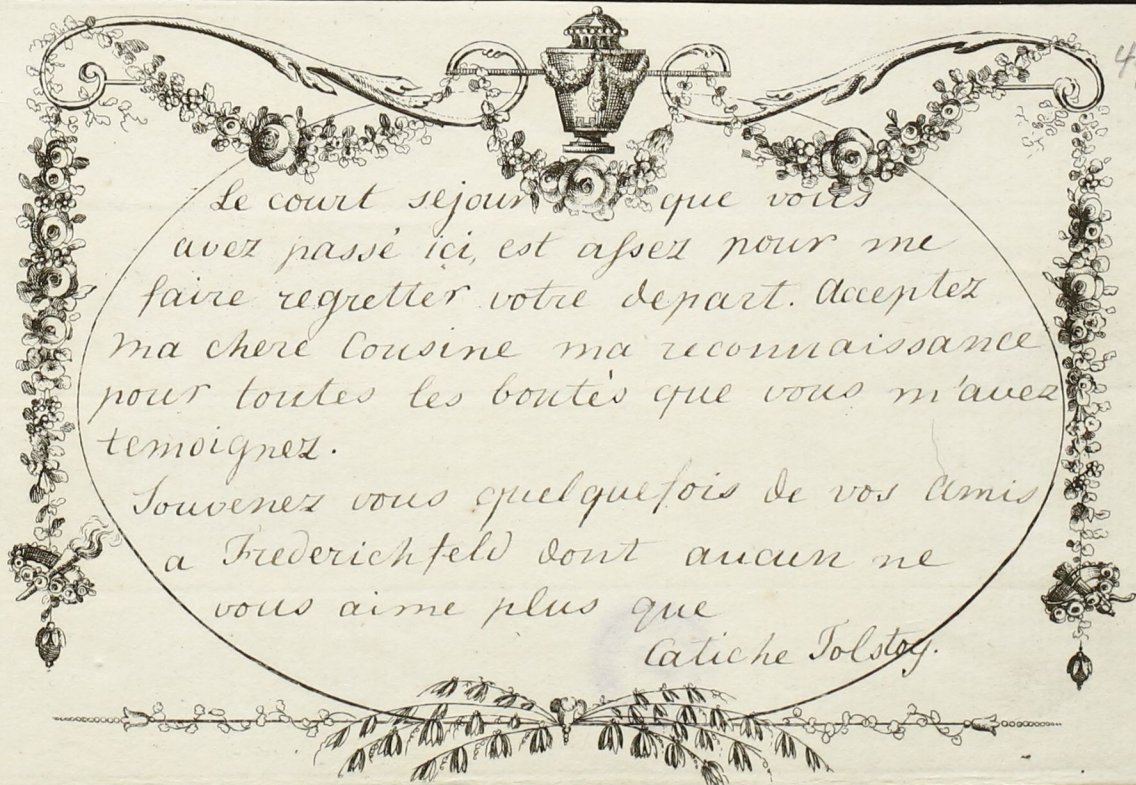 Le court sejour que vous
avez passé ici, est assez pour me
faire regretter votre depart. Acceptez
ma chere Cousine ma reconnaissance
pour toutes les bontés que vous m'avez
temoignez.
Souvenez vous quelquefois de vos Amis
a Frederichfeld dont aucun ne
vous aime plus que
Catiche Tolstoy.